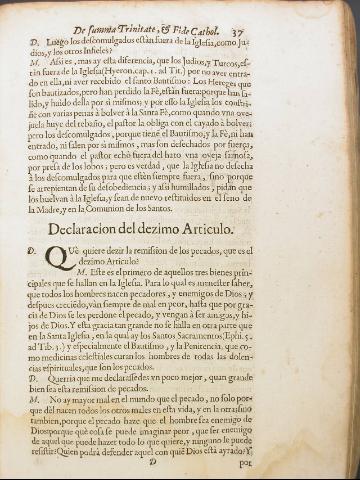 De summa Trinitate, & Fide Cathol. 37
D. Luego los descomulgados estàn fuera de la Iglesia, como Ju-
dios, y los otros Infieles?
M. Assi es, mas ay esta diferencia, que los Judios, y Turcos, es-
tàn fuera de la Iglesia (Hyeron. cap. 1. ad Tit.) por no aver entra-
do en ella, ni aver recebido el santo Bautismo: Los Hereges que
son bautizados, pero han perdido la Fè, estàn fuera: porque han sa-
lido, y huido della por si mismos; y por esso la Iglesia los constri-
ñe con varias penas à bolver à la Santa Fè, como quando vna ove-
juela huye del rebaño, el pastor la obliga con el cayado à bolver:
pero los descomulgados, porque tiene el Bautismo, y la Fè, ni han
entrado, ni salen por si mismos, mas son desechados por fuerça,
como quando el pastor echò fuera del hato vna oveja sarnosa,
por presa de los lobos; pero es verdad, que la Iglesia no desecha
à los descomulgados para que estèn siempre fuera, sino porque
se arrepientan de su desobediencia; y assi humillados, pidan que
los buelvan à la Iglesia, y sean de nuevo restituidos en el seno de
la Madre, y en la Comunion de los Santos.
Declaracion del dezimo Articulo.
D. QUè quiere dezir la remission de los pecados, que es el
dezimo Articulo?
M. Este es el primero de aquellos tres bienes prin-
cipales que se hallan en la Iglesia. Para lo qual es menester saber,
que todos los hombres nacen pecadores, y enemigos de Dios; y
despues creciendo, vàn siempre de mal en peor, hasta que por gra-
cia de Dios se les perdone el pecado, y vengan à ser amigos, y hi-
jos de Dios. Y esta gracia tan grande no se halla en otra parte que
en la Santa Iglesia, en la qual ay los Santos Sacramentos (Ephi. 5.
ad Tib. 3.) y especialmente el Bautismo, y la Penitencia, que co-
mo medicinas celestiales curan los hombres de todas las dolen-
cias espirituales, que son los pecados.
D. Querria que me declarassedes vn poco mejor, quan grande
bien sea esta remission de pecados.
M. No ay mayor mal en el mundo que el pecado, no solo por-
que dèl nacen todos los otros males en esta vida, y en la otra; sino
tambien, porque el pecado haze que el hombre sea enemigo de
Dios: porque què cosa se puede imaginar peor, que ser enemigo
de aquel que puede hazer todo lo que quiere, y ninguno le puede
resistir? Quien podrà defender aquel con quiè Dios està ayrado? Y
D
por